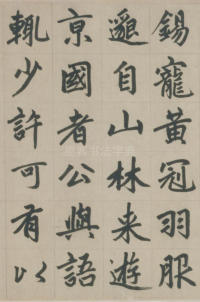 錫寵黃冠羽服
邈自山林来遊
京國者公與語
輒少許可有以